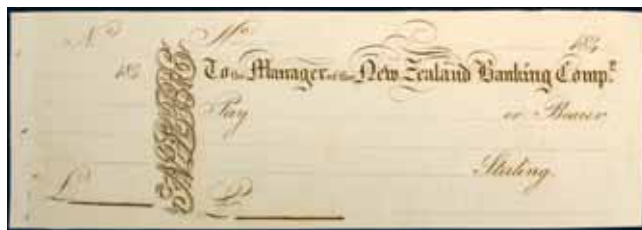 No. No. 184
184 To the Manager of the New Zealand Banking Comp.y
Pay or Bearer
Sterling.
£ £